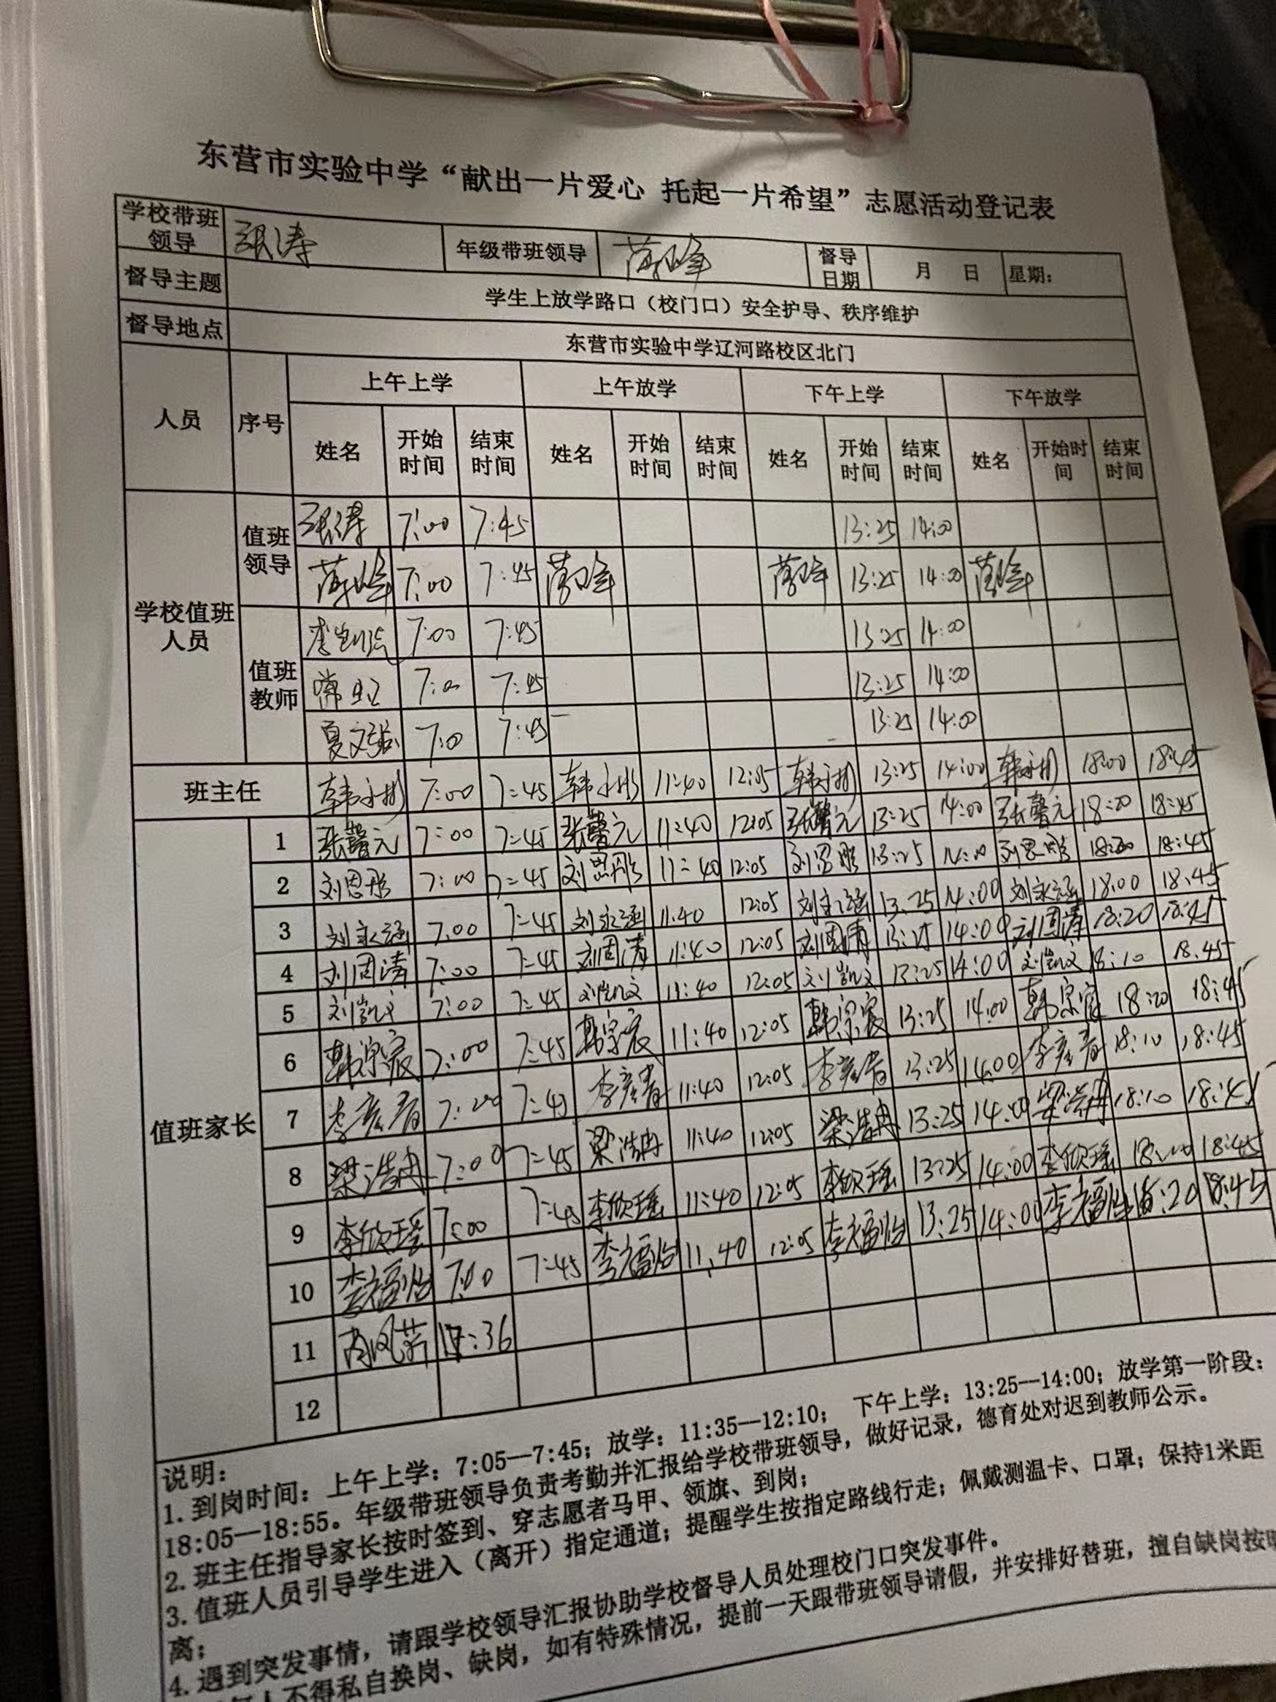 东营市实验中学“献出一片爱心 托起一片希望”志愿活动登记表
学校带班领导 张涛 年级带班领导 薄峰 督导日期 月 日 星期：
督导主题 学生上放学路口（校门口）安全护导、秩序维护
督导地点 东营市实验中学辽河路校区北门
人员 序号 上午上学 上午放学 下午上学 下午放学
姓名 开始时间 结束时间 姓名 开始时间 结束时间 姓名 开始时间 结束时间 姓名 开始时间 结束时间
学校值班人员 值班领导 张涛 7:00 7:45 13:25 14:00
7:00 7:45 13:25 14:00
值班教师 7:00 7:45 13:25 14:00
7:00 7:45 13:25 14:00
夏文强 7:00 7:45 13:25 14:00
班主任 韩永彬 7:00 7:45 韩永彬 11:40 12:05 韩永彬 13:25 14:00 韩永彬 18:00 18:45
值班家长 1 张馨元 7:00 7:45 张馨元 11:40 12:05 张馨元 13:25 14:00 张馨元 18:20 18:45
2 刘恩彤 7:00 7:45 刘恩彤 11:40 12:05 刘恩彤 13:25 14:00 刘恩彤 18:20 18:45
3 刘永涵 7:00 7:45 刘永涵 11:40 12:05 刘永涵 13:25 14:00 刘永涵 18:00 18:45
4 刘周涛 7:00 7:45 刘周涛 11:40 12:05 刘周涛 13:25 14:00 刘周涛 18:20 18:45
5 刘凯文 7:00 7:45 刘凯文 11:40 12:05 刘凯文 13:25 14:00 刘凯文 18:10 18:45
6 韩宗宸 7:00 7:45 韩宗宸 11:40 12:05 韩宗宸 13:25 14:00 韩宗宸 18:20 18:45
7 李彦春 7:20 7:45 李彦春 11:40 12:05 李彦春 13:25 14:00 李彦春 18:10 18:45
8 梁浩冉 7:00 7:45 梁浩冉 11:40 12:05 梁浩冉 13:25 14:00 梁浩冉 18:10 18:45
9 李欣瑶 7:00 7:45 李欣瑶 11:40 12:05 李欣瑶 13:25 14:00 李欣瑶 18:00 18:45
10 李福怡 7:00 7:45 李福怡 11:40 12:05 李福怡 13:25 14:00 李福怡 18:20 18:45
11
12
说明：
1. 到岗时间：上午上学：7:05—7:45；放学：11:35—12:10； 下午上学：13:25—14:00；放学第一阶段：
18:05—18:55。年级带班领导负责考勤并汇报给学校带班领导，做好记录，德育处对迟到教师公示。
2. 班主任指导家长按时签到、穿志愿者马甲、领旗、到岗；
3. 值班人员引导学生进入（离开）指定通道；提醒学生按指定路线行走；佩戴测温卡、口罩；保持1米距
离；
4. 遇到突发事情，请跟学校领导汇报协助学校督导人员处理校门口突发事件。
人不得私自换岗、缺岗，如有特殊情况，提前一天跟带班领导请假，并安排好替班，擅自缺岗按